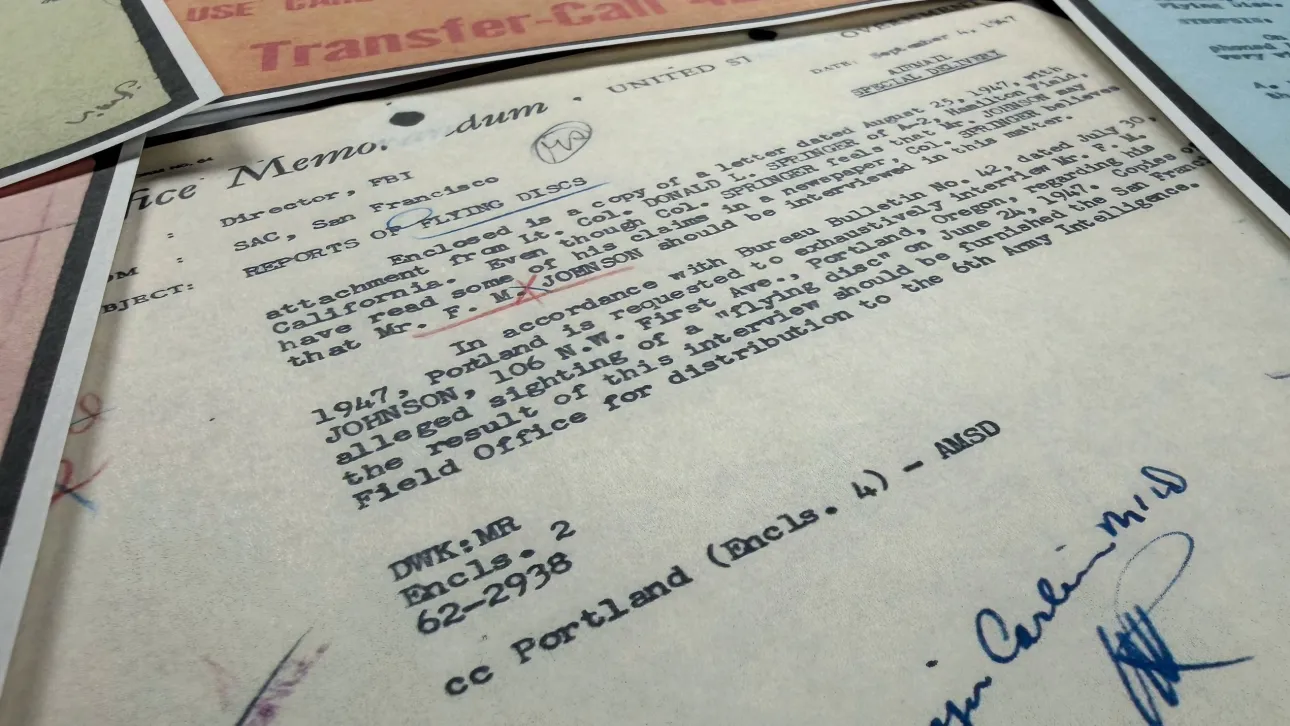 USE CARE
Transfer-Call 42
Office Memorandum · UNITED ST
GOVERNMENT
Director, FBI
DATE: September 4, 1947
SAC, San Francisco
AIRMAIL
SPECIAL DELIVERY
BJECT:
REPORTS OF FLYING DISCS
Enclosed is a copy of a letter dated August 25, 1947, with
attachment from Lt. Col. DONALD L. SPRINGER of A-2, Hamilton Field,
California. Even though Col. SPRINGER feels that Mr. JOHNSON may
have read some of his claims in a newspaper, Col. SPRINGER believes
that Mr. F. M. JOHNSON should be interviewed in this matter.
In accordance with Bureau Bulletin No. 42, dated July 30,
1947, Portland is requested to exhaustively interview Mr. F. M.
JOHNSON, 106 N.W. First Ave., Portland, Oregon, regarding his
alleged sighting of a "flying disc" on June 24, 1947. Copies of
the result of this interview should be furnished the San Francisco
Field Office for distribution to the 6th Army Intelligence.
DWK:MR
Encls. 2
62-2938
cc Portland (Encls. 4) - AMSD
SYNOPSIS.
phoned
very